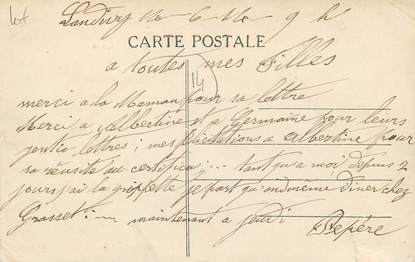 Landivy le 6 Le 9 h
CARTE POSTALE
a toutes mes Filles
14
merci a la Maman pour sa lettre
Merci a Albertine et a Germaine pour leurs
gentie lettres; mes félicitations a Albertine pour
sa réusite au certifica;... tant qu'a moi, depuis 2
jours j'ai la grippette je part qu'and même diner chez
Grasset:
maintenant a jeudi
Pepére